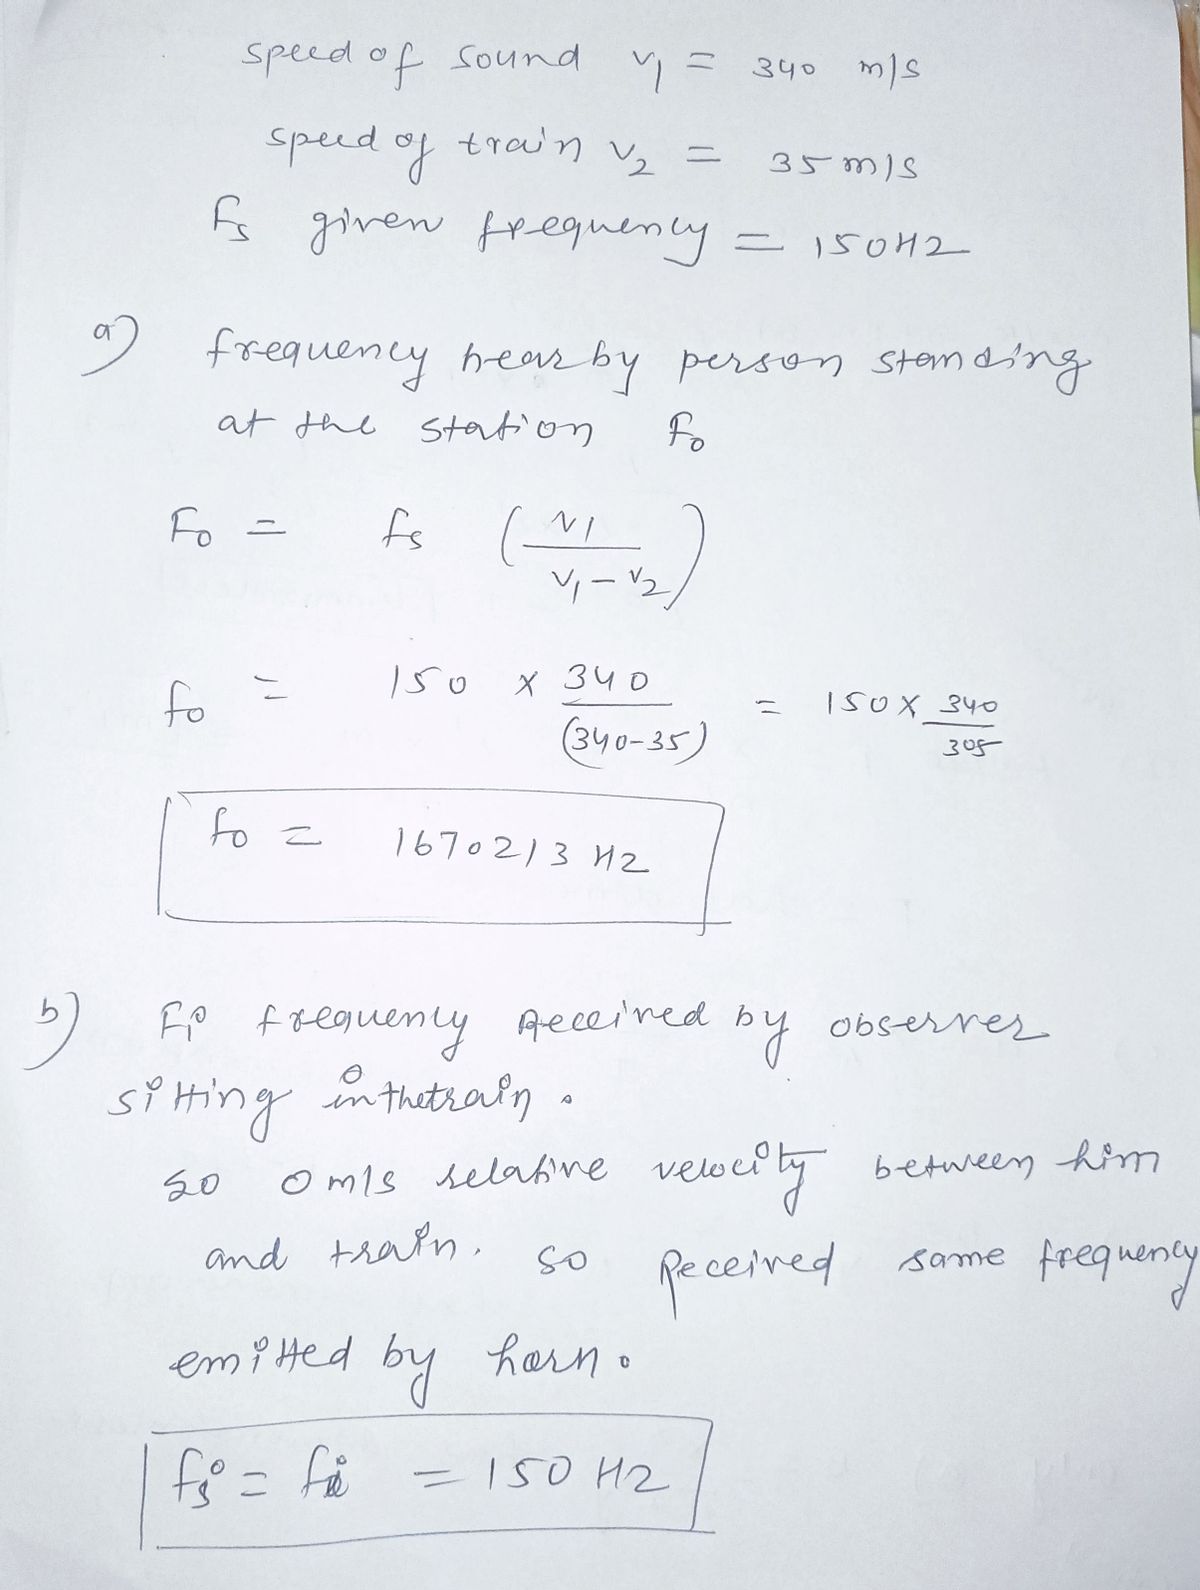 speed of sound v1 = 340 m/s
speed of train v2 = 35 m/s
fs given frequency = 150Hz
a) frequency hear by person standing
at the station fo
Fo = fs (v1 / (v1 - v2))
fo = 150 x 340 / (340-35) = 150 x 340 / 305
fo = 1670213 Hz
b) Fi frequency Received by observer
sitting in the train.
so 0 m/s relative velocity between him
and train. so Received same frequency
emitted by horn.
= 150 Hz